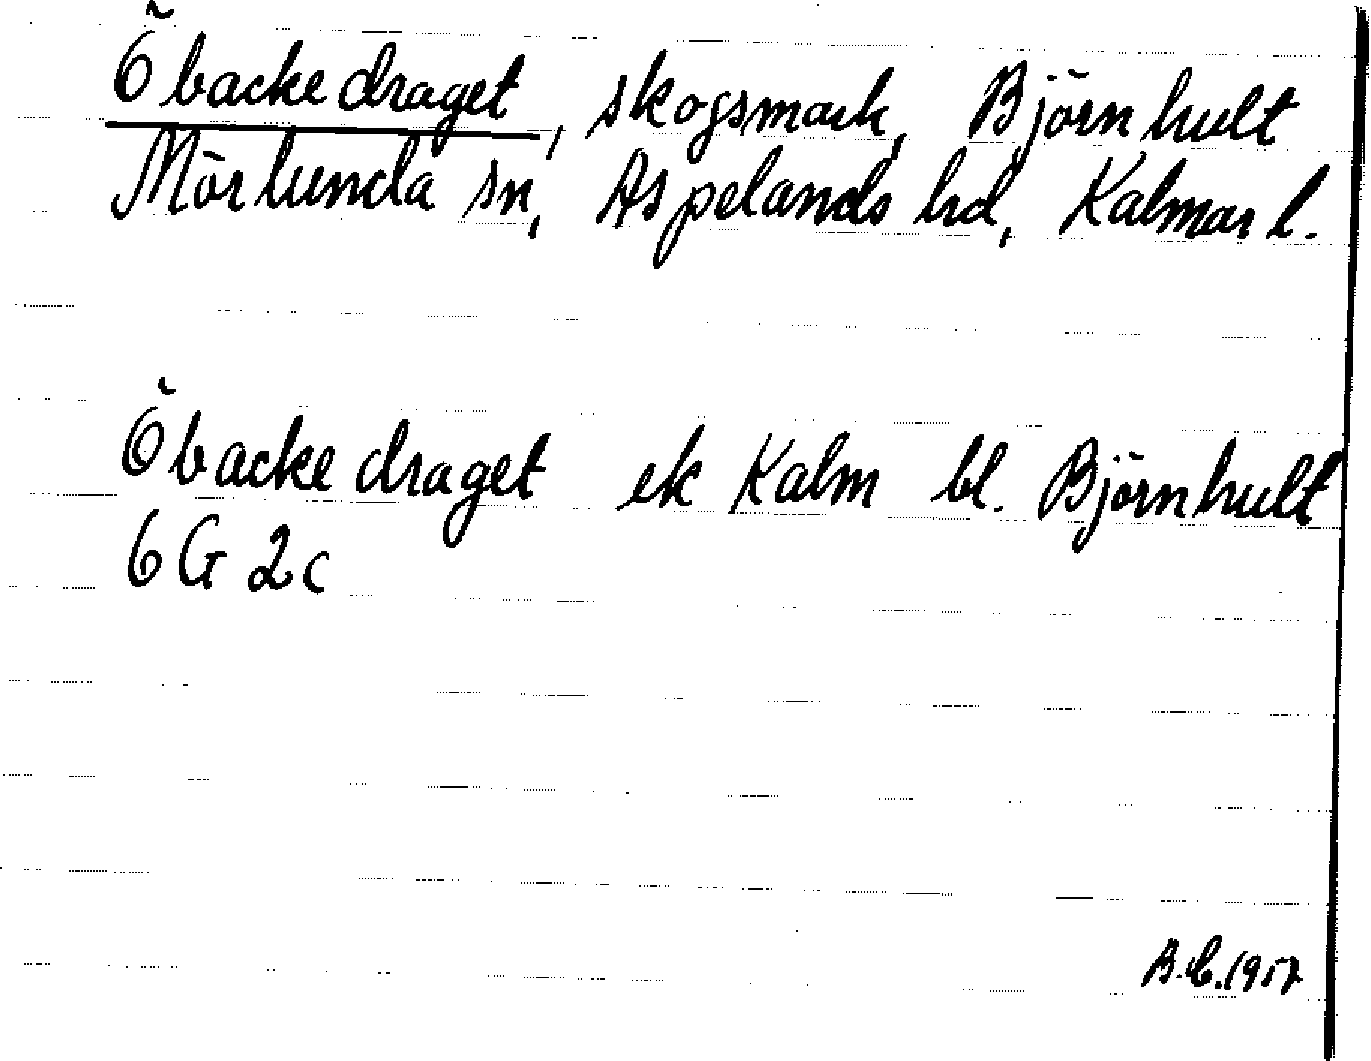 Öbackedraget, skogsmark, Björnhult
Mörlunda sn, Aspelands hd, Kalmar l.
Öbackedraget ek Kalm bl. Björnhult
6G 2c
1957